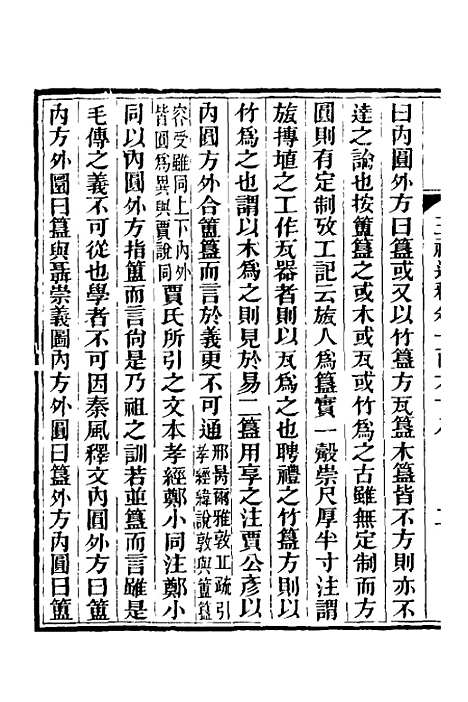 曰內圓外方曰簋或又以竹簋方瓦簋木簋皆不方則亦不
達之論也按簠簋之或木或瓦或竹爲之古雖無定制而方
圓則有定制攷工記云旊人爲簋實一觳崇尺厚半寸注謂
旊摶埴之工作瓦器者則以瓦爲之也聘禮之竹簋方則以
竹爲之也謂以木爲之則見於易二簋用享之注賈公彥以
內圓方外合簠簋而言於義更不可通邢昺爾雅敦丘疏引
孝經緯說敦與簠簋
容受雖同上下內外
皆圓爲異與賈說同賈氏所引之文本孝經鄭小同注鄭小
同以內圓外方指簠而言尙是乃祖之訓若並簋而言雖是
毛傳之義不可從也學者不可因秦風釋文內圓外方曰簋
內方外圓曰簋與聶崇義圖內方外圓曰簋外方內圓曰簠